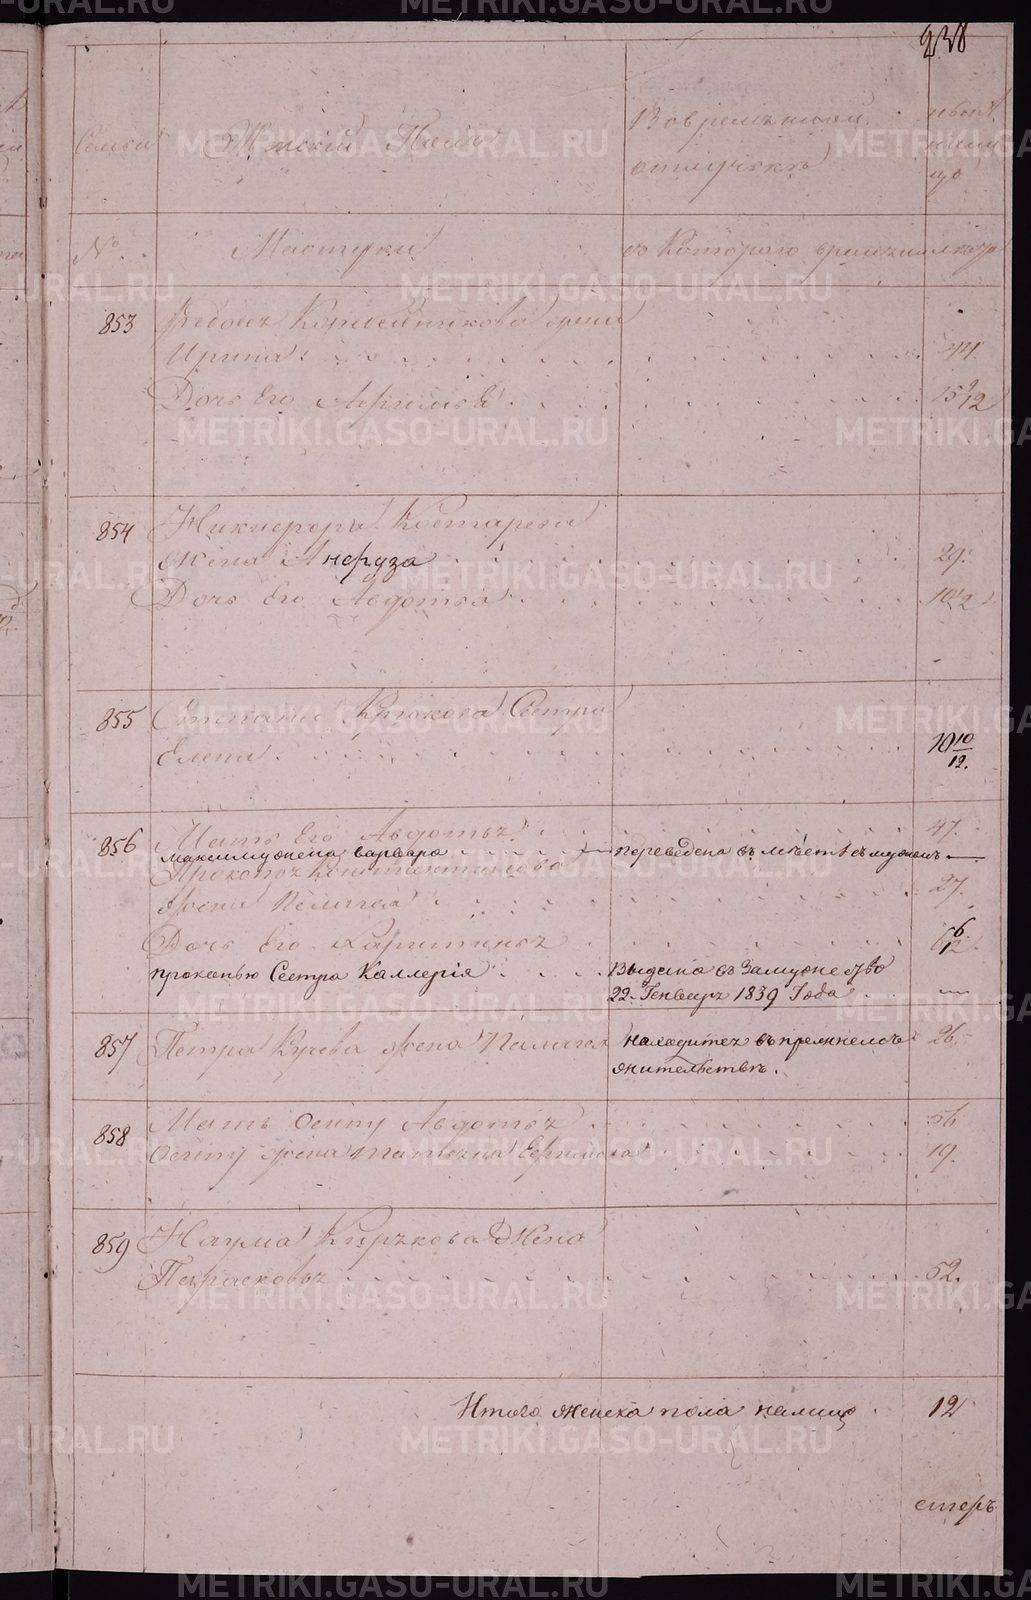 238
Семьи Женскiй Полъ Вовременной отлучкѣ ныне на лицо
№ Мастерки съ котораго времени лета
853 Федота Коршевникова жена
Ирина 44.
Дочь Его Афимья 15 9/12
854 Никифора Костарева
жена Анфуза 29.
Дочь Его Авдотья
855 Степана Крюкова Сестра
Елена 10 10/12.
856 Мать Его Авдотья 47.
максимужена варвара переведена въ мѣстѣ съ мужемъ —
Прокопья Константинова
жена Пелагея 27.
Дочь Его Харитинья 6 6/12
прокопью Сестра Каллерiя Выдана въ Замужество
22. Генваря 1839 Года —
857 Петра Кучева жена Палагея находится въ
жительствѣ. 26.
858 Мать Осипу Авдотья 56
Осипу жена Татьяна Ефимова 19.
859 Наума Кирѣкова Жена
Парасковья 52.
Итого женска пола налицо 12